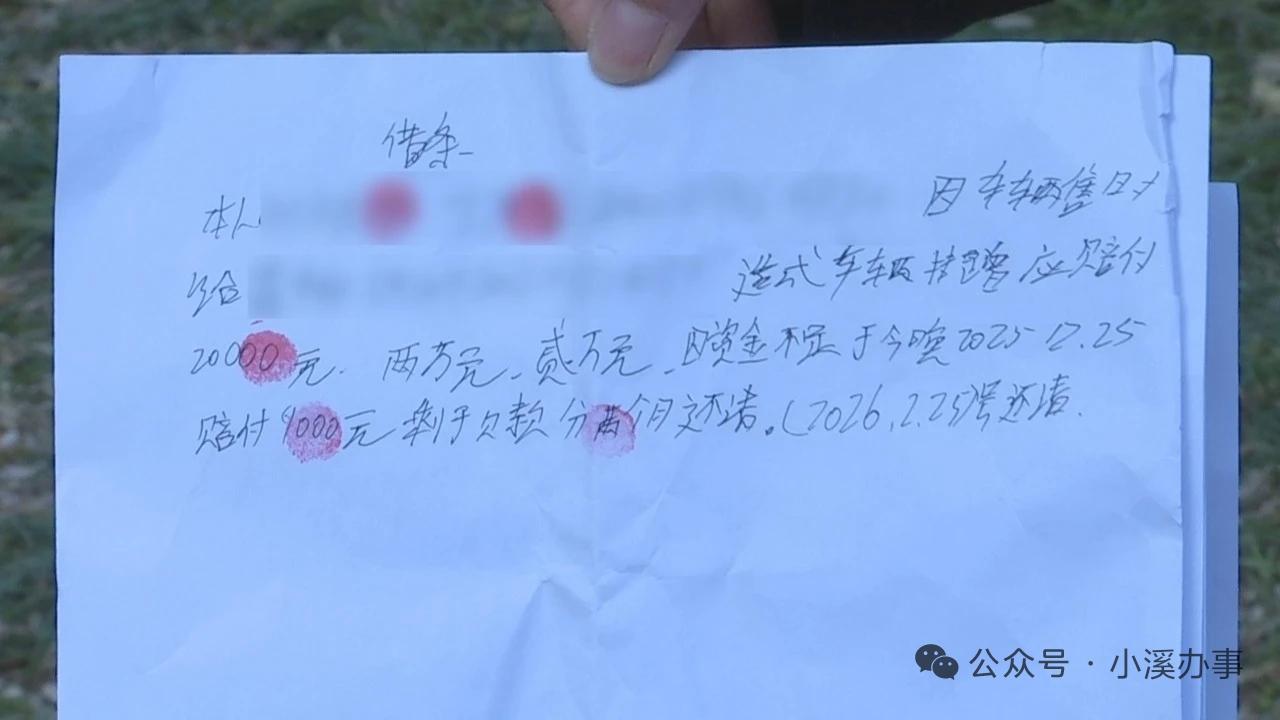 借条
本人 因车辆售
给 造成车辆 应赔付
20000元. 两万元、贰万元、因资金不足于今晚2025-12.25
赔付4000元剩于欠款分两个月还清。(2026.2.25)号还清.
公众号 · 小溪办事